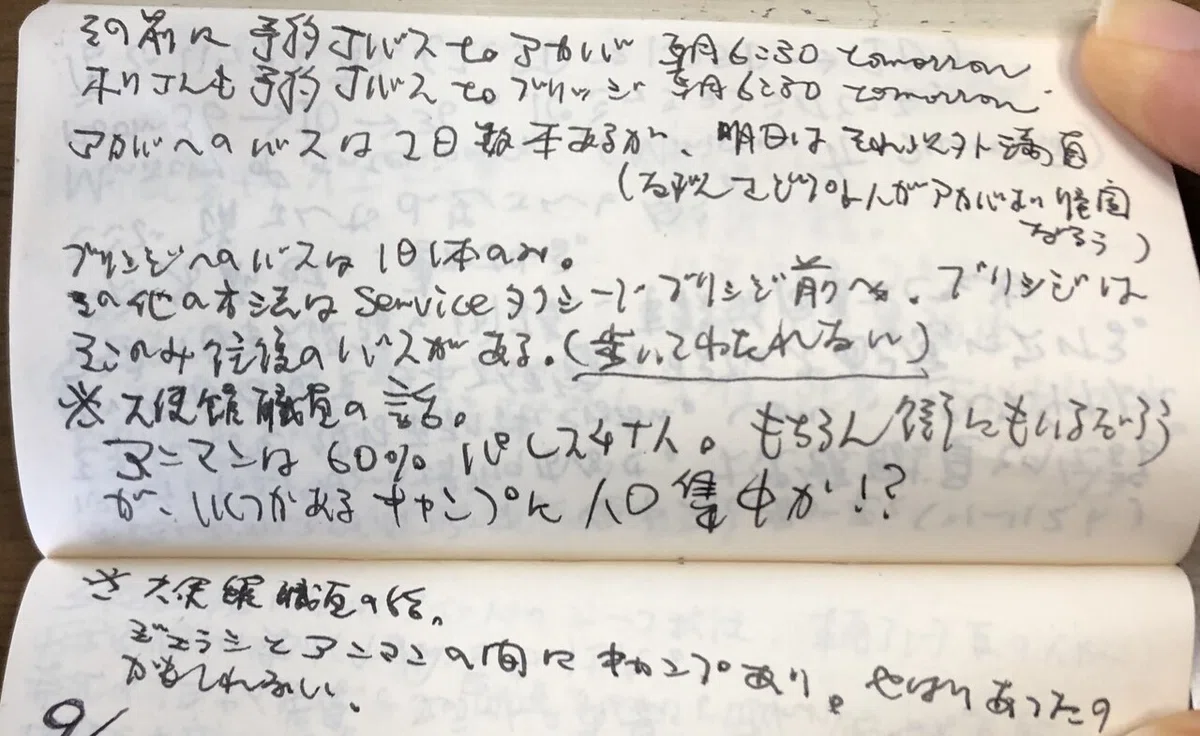 その前に 予約 Jバス to アカバ 朝6:30 tomorrow
予約 Jバス to ブリッジ 朝6:30 tomorrow
アカバへのバスは1日数本あるが、明日はそれ以外満員
がアカバ
だろう)
ブリッジへのバスは1日1本のみ。
その他の方法はServiceタクシーでブリッジ前へ。ブリッジは
そこのみ往復のバスがある。(歩いてわたれない)
※大使館職員の話。
アンマンは60%パレスチナ人。もちろん にもいるだろう
が、いくつかあるキャンプに人口集中か!?
※大使館職員の話。
ジェラシとアンマンの間にキャンプあり。やはりあったの
かもしれない。
9/